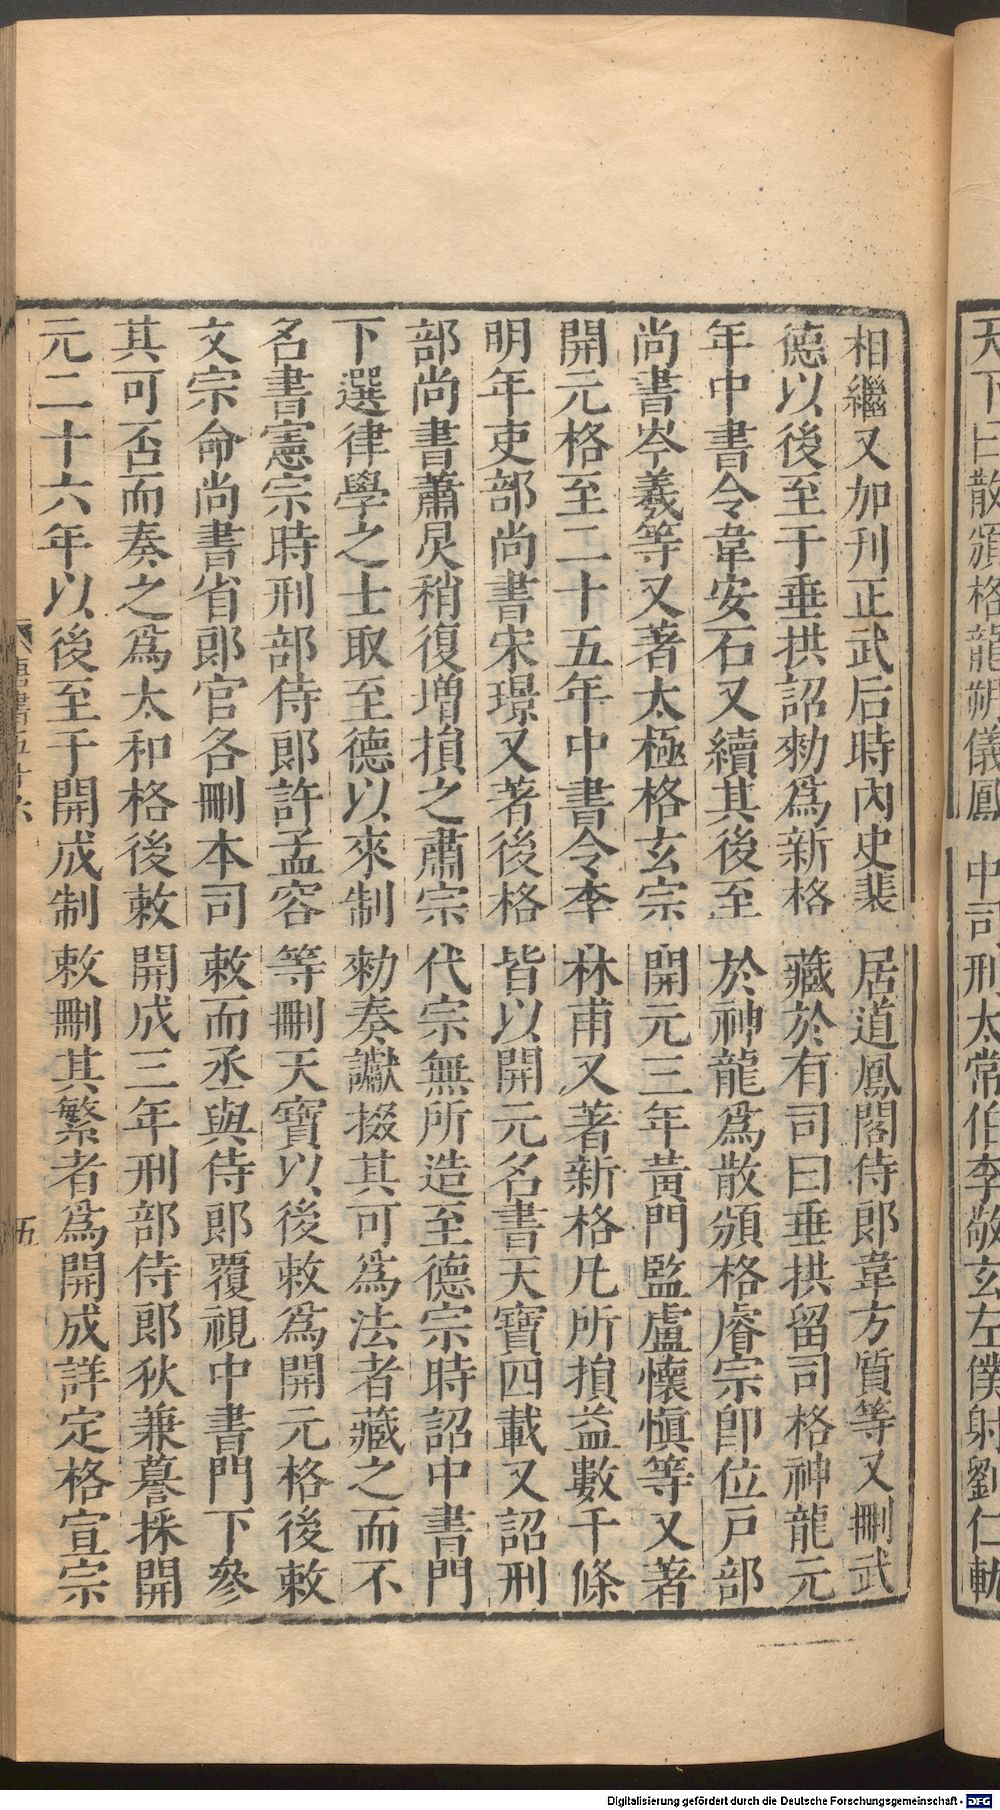 天下曰散頒格龍朔儀鳳中司刑太常伯李敬玄左僕射劉仁軌
相繼又加刋正武后時內史裴居道鳳閣侍郎韋方質等又刪武
德以後至于垂拱詔勑爲新格藏於有司曰垂拱留司格神龍元
年中書令韋安石又續其後至於神龍爲散頒格睿宗卽位戸部
尚書岑羲等又著太極格玄宗開元三年黃門監盧懷愼等又著
開元格至二十五年中書令李林甫又著新格凡所損益數千條
明年吏部尚書宋璟又著後格皆以開元名書天寶四載又詔刑
部尚書蕭炅稍復增損之肅宗代宗無所造至德宗時詔中書門
下選律學之士取至德以來制勑奏讞掇其可爲法者藏之而不
名書憲宗時刑部侍郎許孟容等刪天寶以後敕爲開元格後敕
文宗命尚書省郎官各刪本司敕而丞與侍郎覆視中書門下參
其可否而奏之爲太和格後敕開成三年刑部侍郎狄兼謩採開
元二十六年以後至于開成制敕刪其繁者爲開成詳定格宣宗
唐書五十六
五
Digitalisierung gefördert durch die Deutsche Forschungsgemeinschaft - DFG